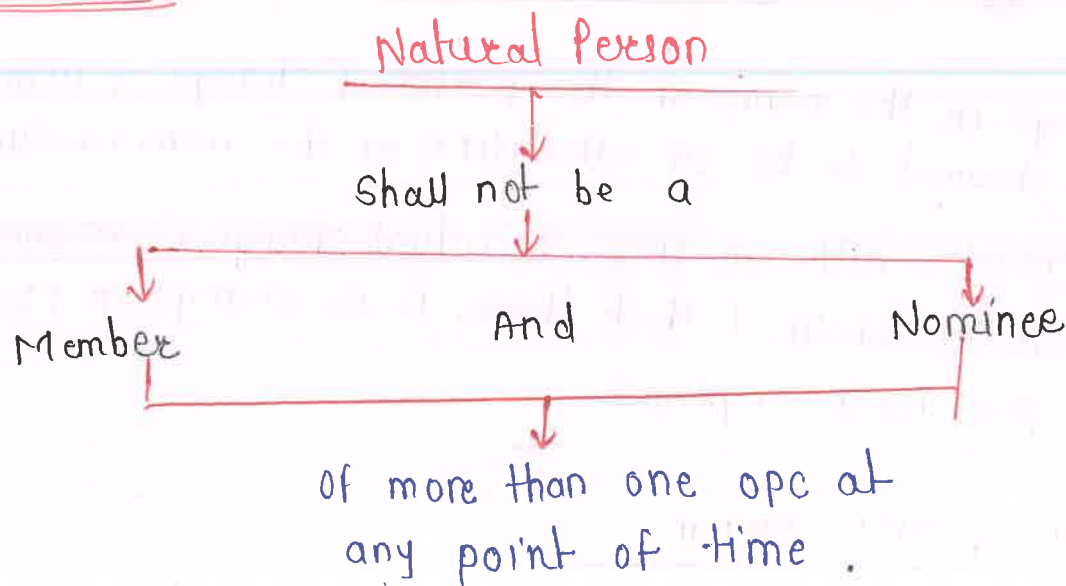 Natural Person
Shall not be a
Member And Nominee
Of more than one opc at
any point of time.